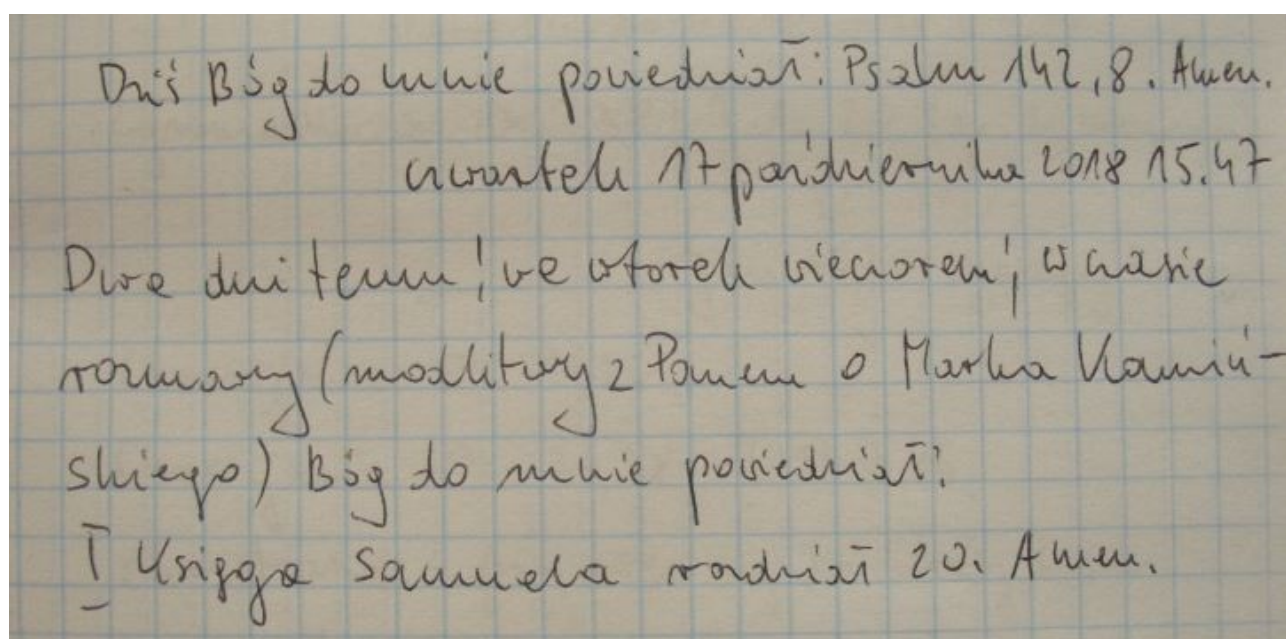 Dziś Bóg do mnie powiedział: Psalm 142,8. Amen.
czwartek 17 października 2018 15.47
Dwa dni temu, we wtorek wieczorem, w czasie
rozmowy (modlitwy z Panem o Marka Kamiń-
skiego) Bóg do mnie powiedział:
I Księga Samuela rozdział 20. Amen.